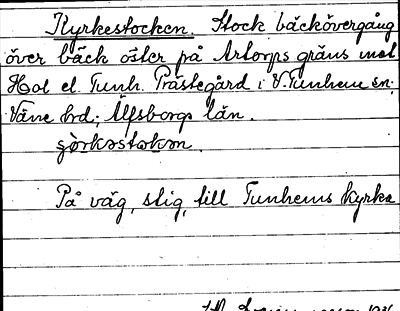 Kyrkestocken. Stock bäckövergång
över bäck öster på Artorps gräns mot
Hol el. Tunh. Prästegård i V. Tunhem sn.
Väne hd. Älfsborgs län.
På väg, stig, till Tunhems kyrka